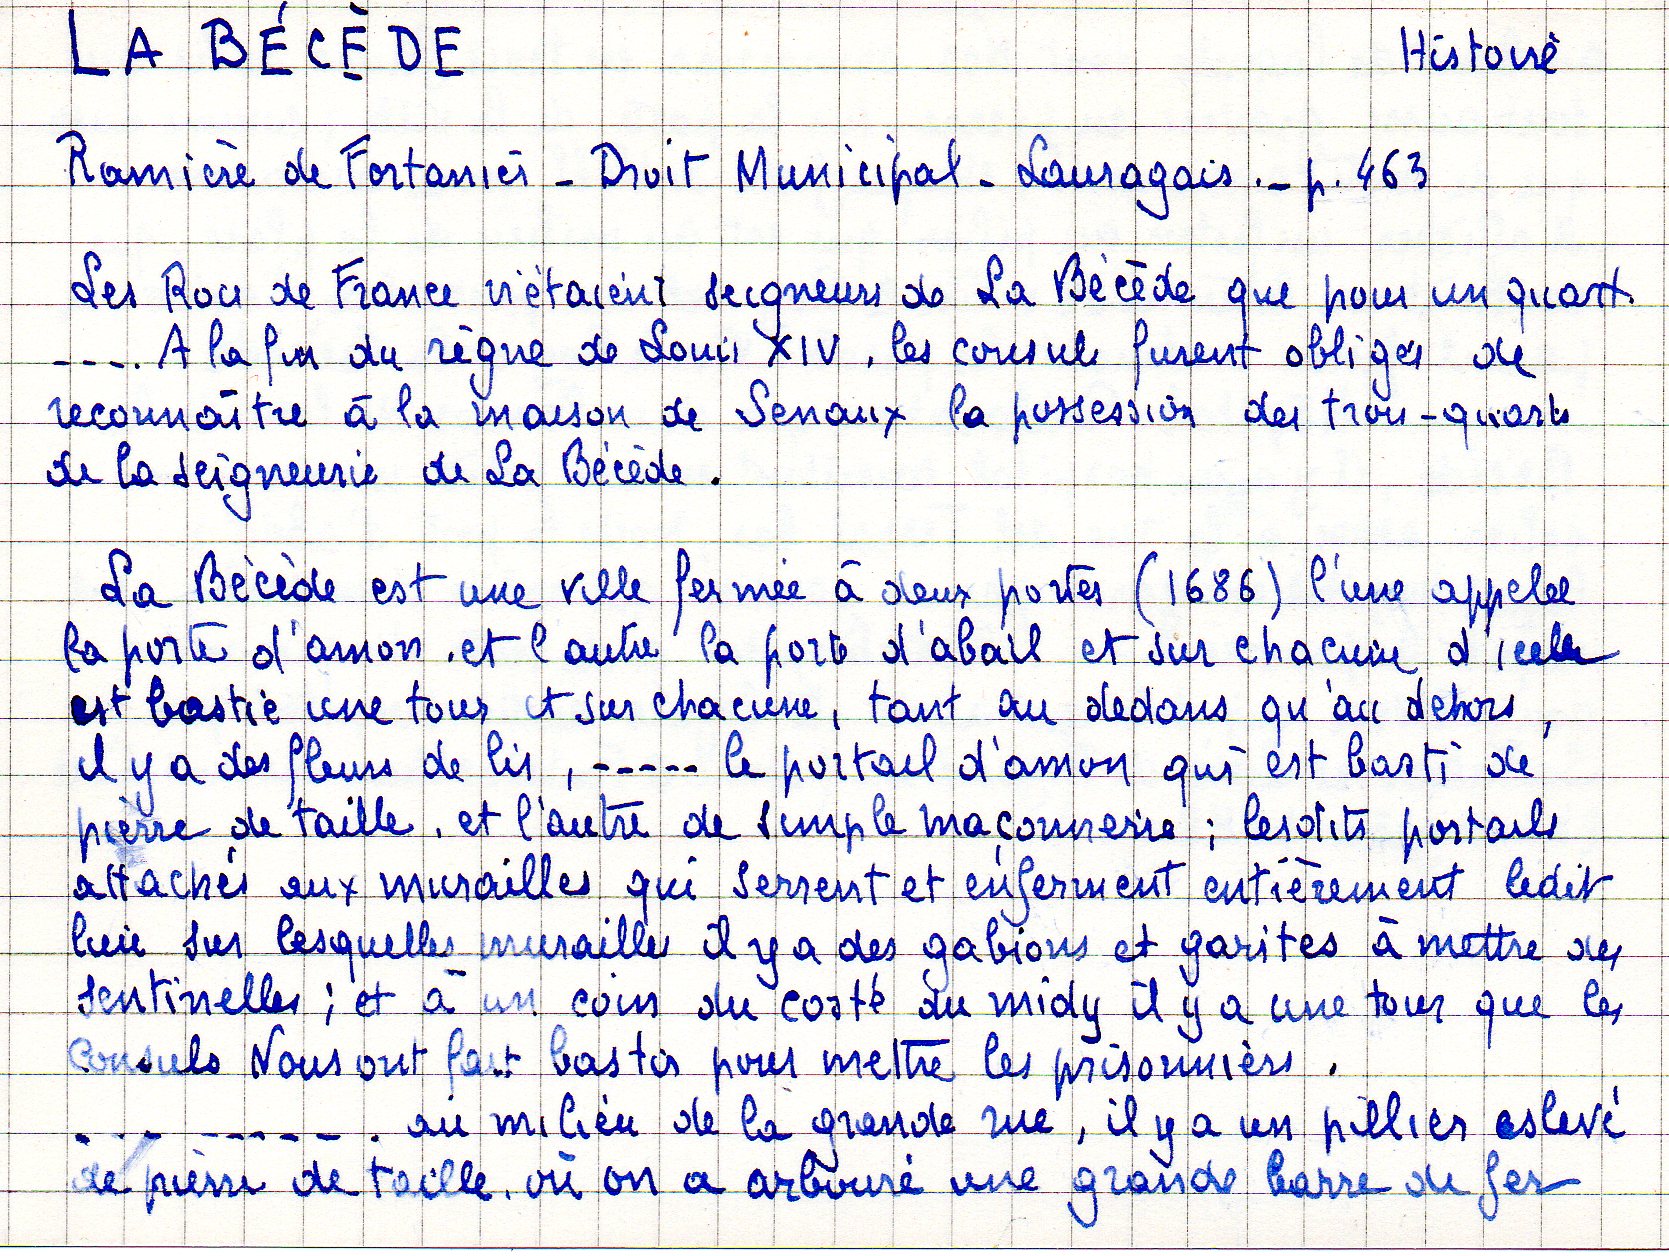 LA BÉCÈDE
Histoire
Ramière de Fortanier - Droit Municipal - Lauragais.- p. 463
Les Rois de France n'étaient seigneurs de La Bécède que pour un quart
----. A la fin du règne de Louis XIV, les consuls furent obligés de
reconnaître à la maison de Senaux la possession des trois-quarts
de la seigneurie de La Bécède.
La Bécède est une ville fermée à deux portes (1686) l'une appelée
la porte d'amon, et l'autre la porte d'abail et sur chacune d'icelles
est bastie une tour et sur chacune, tant au dedans qu'au dehors,
il y a des fleurs de lis, ----- le portail d'amon qui est basti de
pierre de taille, et l'autre de simple maçonnerie; lesdits portails
attachés aux murailles qui serrent et enferment entièrement ledit
lieu sur lesquelles murailles il y a des gabions et garites à mettre des
sentinelles; et à un coin du costé du midy il y a une tour que les
Consuls Nous ont fait bastir pour mettre les prisonniers.
--- -----. au milieu de la grande rue, il y a un pillier eslevé
de pierre de taille, où on a arbouré une grande barre de fer